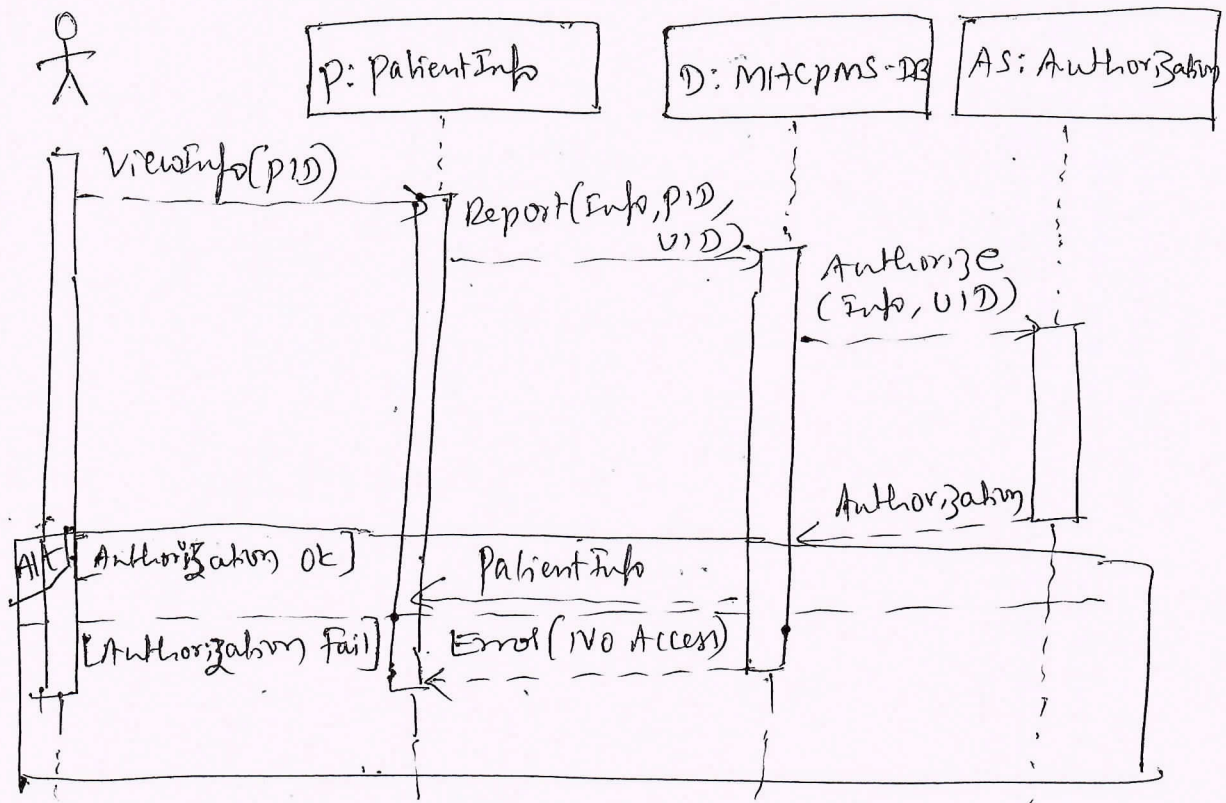 P: PatientInfo
D: MHCPMS-DB
AS: Authorization
ViewInfo(PID)
Report(Info, PID,
UID)
Authorize
(Info, UID)
Authorization
Alt
[Authorization OK]
PatientInfo
[Authorization Fail]
Error(No Access)